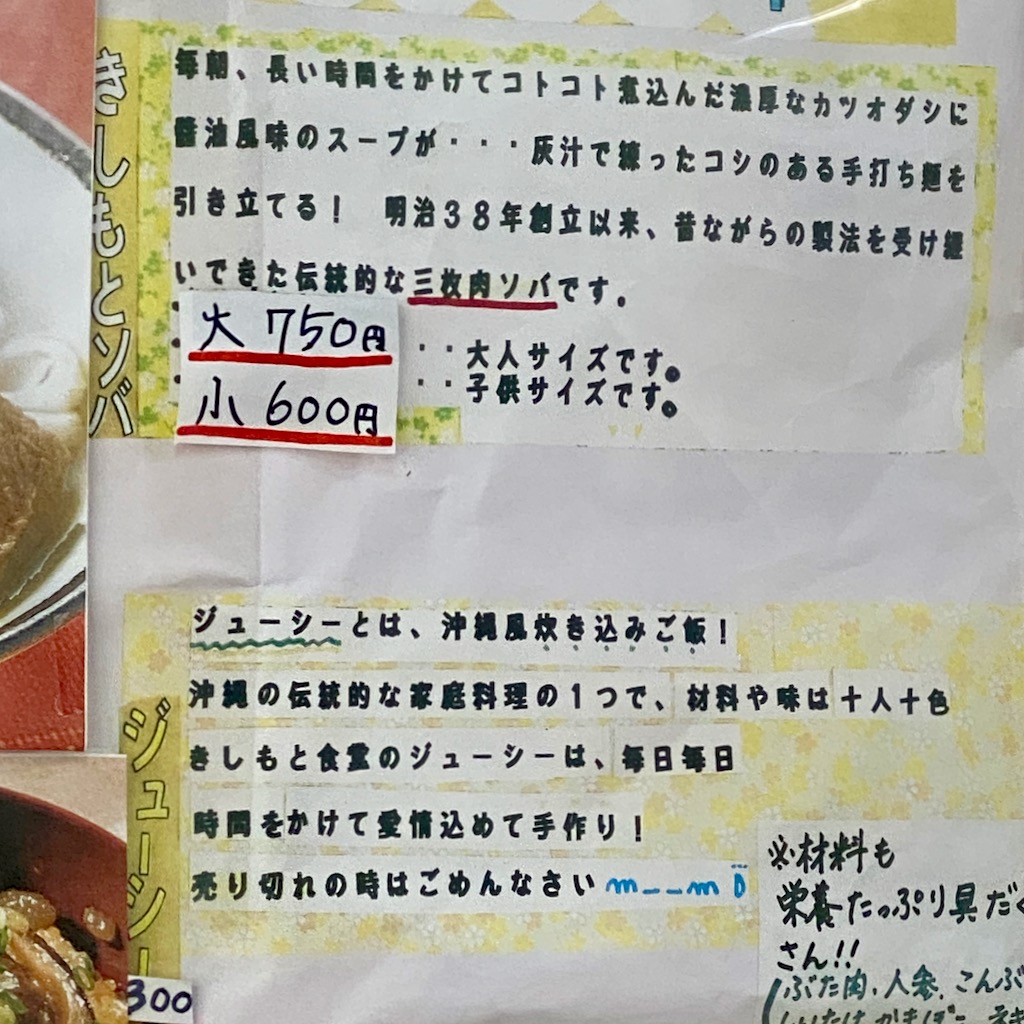 きしもとソバ
毎朝、長い時間をかけてコトコト煮込んだ濃厚なカツオダシに
醤油風味のスープが・・・灰汁で練ったコシのある手打ち麺を
引き立てる！ 明治３８年創立以来、昔ながらの製法を受け継
いできた伝統的な三枚肉ソバです。
大 750円 ・・大人サイズです。
小 600円 ・・子供サイズです。
ジューシー
ジューシーとは、沖縄風炊き込みご飯！
沖縄の伝統的な家庭料理の１つで、材料や味は十人十色
きしもと食堂のジューシーは、毎日毎日
時間をかけて愛情込めて手作り！
売り切れの時はごめんなさいm__m
300
※材料も
栄養たっぷり具だく
さん!!
(ぶた肉、人参、こんぶ
しいたけ かまぼこ